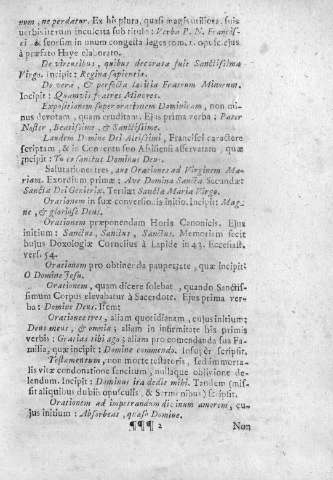 num, ne perdatur. Ex his plura, quasi magis utiliora, suis
verbis iterum inculcata sub titulo: Verba P. N. Francis-
ci, & seorsim in unum congesta leges tom. 1. opusc. ejus
à præfato Haye elaborato.
De virtutibus, quibus decorata fuit Sanctissima
Virgo. Incipit: Regina sapientia.
De vera, & perfecta lætitia Fratrum Minorum.
Incipit: Quamvis fratres Minores.
Expositionem super orationem Dominicam, non mi-
nus devotam, quam eruditam. Ejus prima verba: Pater
Noster, Beatissime, & Sanctissime.
Laudem Domine Dei Altissimi, Francisci caractere
scriptam, & in Conventu seu Assisiensi asservatam, quæ
incipit: Tu es sanctus Dominus Deus.
Salutationes tres, aut Orationes ad Virginem Ma-
riam. Exordium primæ: Ave Domina Sancta. Secundæ:
Sancta Dei Genitrix. Tertiæ: Sancta Maria Virgo.
Orationem in suæ conversionis initio. Incipit: Mag-
ne, & gloriose Deus.
Orationem præponendam Horis Canonicis. Ejus
initium: Sanctus, Sanctus, Sanctus. Memoriam fecit
hujus Doxologiæ Cornelius à Lapide in 43. Ecclesiast.
vers. 54.
Orationem pro obtinenda paupertate, quæ incipit:
O Domine Jesu.
Orationem, quam dicere solebat, quando Sanctis-
simum Corpus elevabatur à Sacerdote. Ejus prima ver-
ba: Domine Deus. Item:
Orationes tres, aliam quotidianam, cujus initium:
Deus meus, & omnia; aliam in infirmitate his primis
verbis: Gratias tibi ago; aliam pro comendanda sua Fa-
milia, quæ incipit: Domine commendo. Insuper scripsit.
Testamentum, non morte testatoris, sed immorta-
lis vitæ condonatione sancitum, nullaque oblivione de-
lendum. Incipit: Dominus ita dedit mihi. Tandem (mis-
sis aliquibus dubiis opusculis, & Sermonibus) scripsit.
Orationem ad impetrandum divinum amorem, cu-
jus initium: Absorbeat, quæso Domine.
¶¶¶ 2 Non